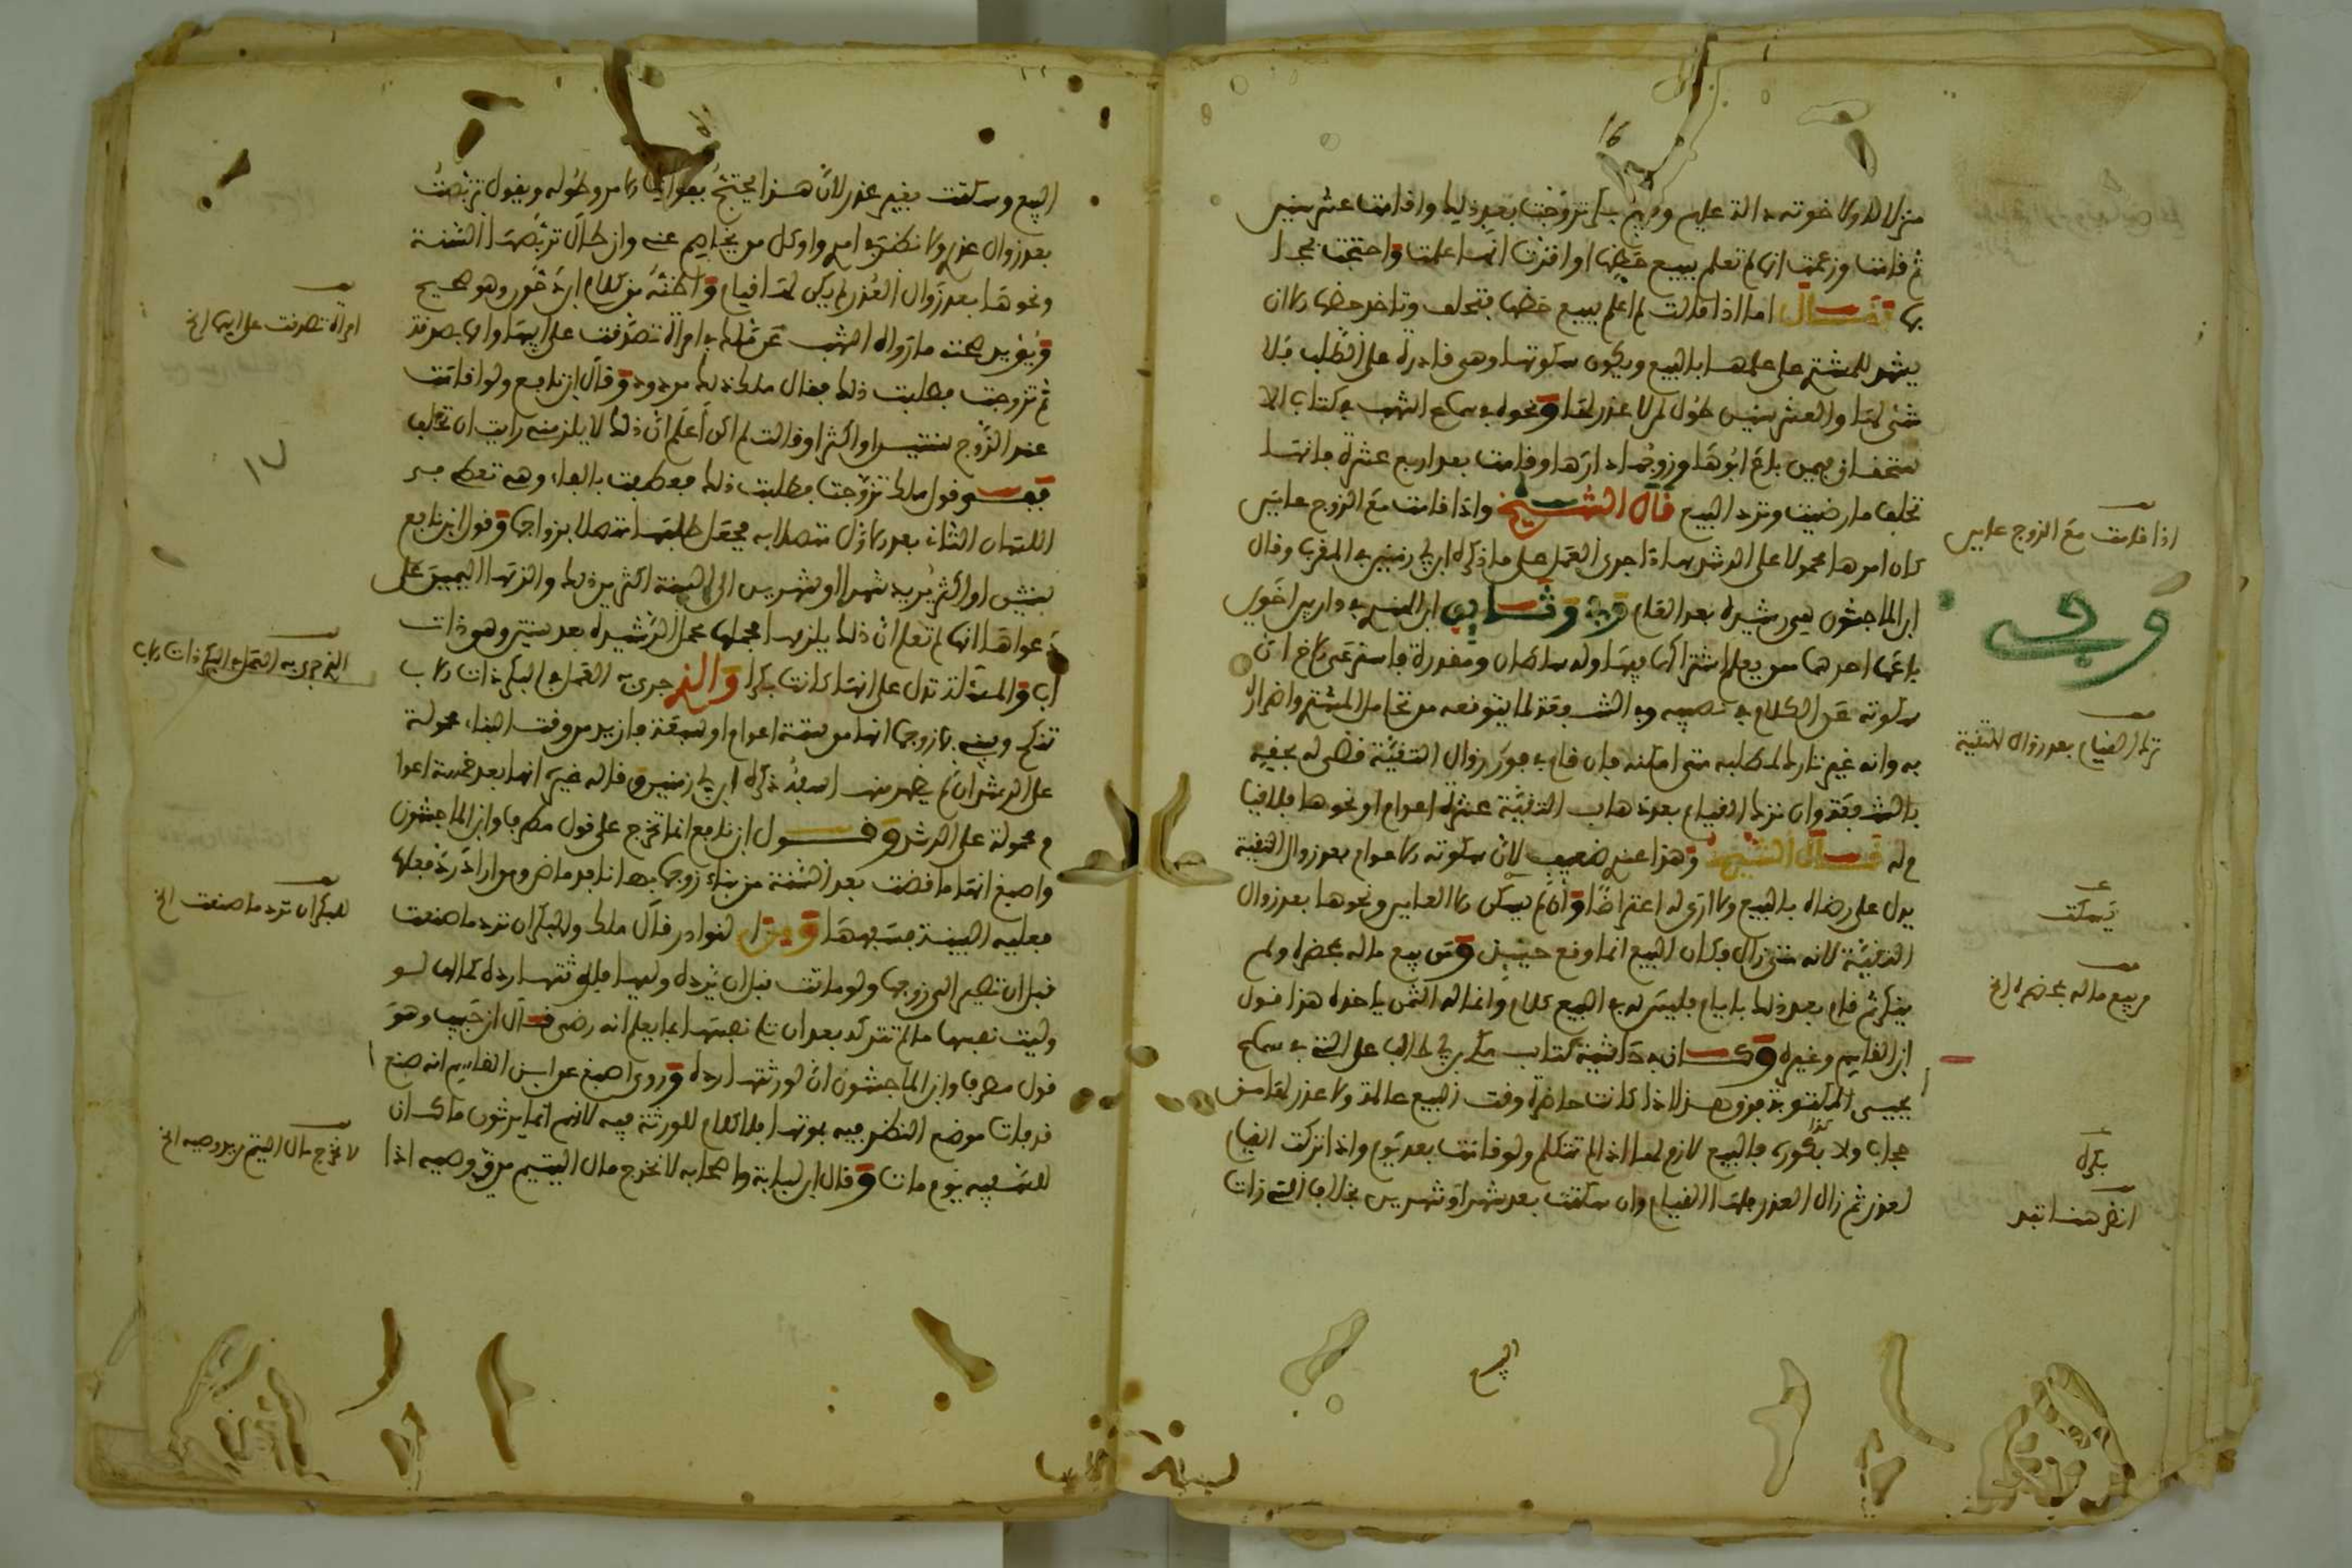 ثم قامت وزعمت انها لم تعلم ببيع حظها او اقرت انها علمت واحتجت
بها قال اما اذا قالت لم اعلم ببيع حظها فتحلف وتاخذ حظها الا ان
يشهد للمشتري على علمها بالبيع ويكون سكوتها وهي قادرة على الطلب فلا
شيء لها والعشر سنين طول لمن لا عذر لها ونحوه في سماع اشهب في كتاب الا
ستحقاق فيمن باع ابوها وزوجها دارها وقامت بعد اربع عشرة فانها
تحلف ما رضيت وترد البيع قال الشيخ واذا قامت مع الزوج عامين
كان امرها محمولا على الرشد بهاذا جرى العمل على ما ذكره ابن ابي زمنين في المغرب وقال
ابن الماجشون هي رشيدة بعد العام وفي وثائق ابن الهندي في دار بين اخوين
باعها احدهما ممن يعلم اشتراكهما فيها وله سلطان ومقدرة فاسترعى الاخ ان
سكوته عن الكلام في نصيبه وفي الشفعة لما يتوقعه من تحامل المشتري واضراره
به وانه غير تارك لمطلبه متى امكنه فان قام في فور زوال التقية قضي له بحقه
بالشفعة وان ترك القيام بعد ذهاب التقية عشرة اعوام او نحوها فلا قيا
م له قال الشيخ وهذا عندي ضعيف لان سكوته الاعوام بعد زوال التقية
يدل على رضاه بالبيع ولا ارى له اعتراضا وان لم يسكن الا العامين ونحوها بعد زوال
التقية لانه متى زال فكان البيع انما وقع حينئذ ومن بيع ماله بمحضره ولم
ينكر ثم قام بعد ذلك بايام فليس له في البيع كلام وانما له الثمن ياخذه هذا قول
ابن القاسم وغيره وكان في حاشية كتاب مكي بن ابي طالب على التي في سماع
يحيى المكتوبة فوق هذا اذا كانت حاضرة وقت البيع عالمة ولا عذر لها من
حجاب ولا بكورى فالبيع لازم لها اذا لم تتكلم ولو قامت بعد يوم واذا تركت القيام
لعذر ثم زال العذر فلها القيام وان سكتت بعد شهر او شهرين بخلاف التي زات
اذا قامت مع الزوج عامين
ترك القيام بعد زوال التقية
يسكت
من بيع ماله بمحضره الخ
بكرة
انظر هنا تجد
البيع
البيع وسكتت بغير عذر لان هذا يحتج بعواقب الامر وطوله ويقول تربصت
بعد زوال عذري لانظر في امري واوكل من يخاصم عني وان طال تربصها السنة
ونحوها بعد زوال العذر لم يكن لها قيام واظنه من كلام ابن دحون وهو صحيح
ويؤيد صحته ما رواه اشهب عن مالك في امراة تصدقت على ابيها وابى بصدقة
ثم تزوجت فطلبت ذلك فقال مالك ذلك مردود وقال ابن نافع ولو اقامت
عند الزوج سنتين او اكثر او قالت لم اكن اعلم ان ذلك لا يلزمني رايت ان تحلف
ففي قول مالك تزوجت فطلبت ذلك فعطفت بالفاء وهي تعطي
اللتان الثاني بعد الاول متصلا به فجعل طلبها متصلا بزواجها وقول ابن نافع
سنتين او اكثر يريد شهرا او شهرين الى السنة اكثر من ذلك والزمها اليمين على
دعواها انها لم تعلم ان ذلك يلزمها فحملها محمل الرشيدة بعد سنتين وهو ذات
اب والمسئلة تدل على انها كانت بكرا والذي جرى به العمل في البكر ذات الاب
تنكح ويبني بها زوجها انها من ستة اعوام او سبعة فازيد من وقت البناء محمولة
على الرشد ان لم يظهر منها سفه ذكره ابن ابي زمنين وقاله غيره انها بعد خمسة اعوا
م محمولة على الرشد وقول ابن نافع انما تخرج على قول مطرف وابن الماجشون
واصبغ انها ما قضت بعد السنة من بناء زوجها بها نافذ ماض ومن اراد رد فعلها
فعليه البينة بسفهها ومن النوادر قال مالك وللبكر ان ترد ما صنعت
قبل ان تصير الى زوجها ولو ماتت قبل ان يرده وليها فلورثتها رده كما لها لو
وليت نفسها ما لم تتركه بعد ان تلي نفسها بما يعلم انه رضى قال ابن حبيب وهو
قول مطرف وابن الماجشون ان لورثتها رده وروى اصبغ عن ابن القاسم انه صنع
قد مات موضع النظر فيه بموتها فلا كلام للورثة فيه لانهم انما يرثون ما كان
للسفيه يوم مات وقال ابن لبابة واصحابه لا تخرج مال اليتيم من يد وصيه اذا
امراة تصدقت على ابيها الخ
الذي جرى به العمل في البكر ذات الاب
للبكر ان ترد ما صنعت الخ
لا تخرج مال اليتيم من يد وصيه الخ